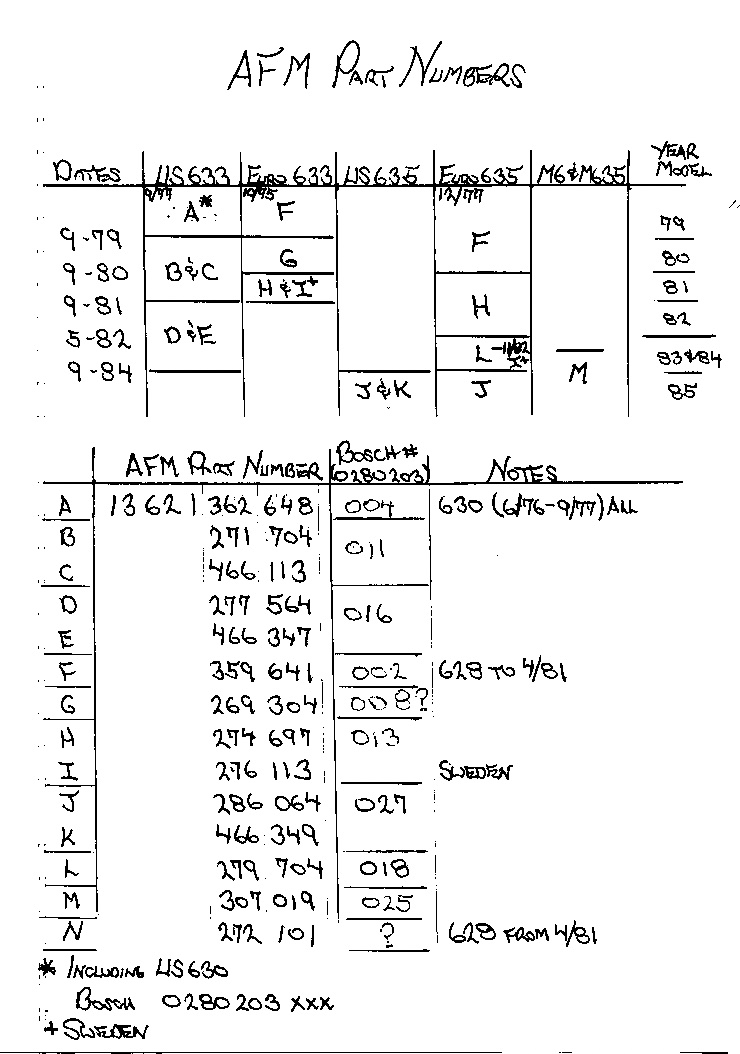 AFM PART NUMBERS
DATES US633 EURO633 US635 EURO635 M6&M635 YEAR MODEL
9/77 10/75 12/77
A* F
79
9-79 F
G 80
9-80 B&C
H&I+ 81
9-81 H
82
5-82 D&E
L -11/82 I+ 83&84
9-84 M
J&K J 85
AFM PART NUMBER BOSCH # (0280203) NOTES
A 13 621 362 648 004 630 (6/76-9/77) ALL
B 271 704 011
C 466 113
D 277 564 016
E 466 347
F 359 641 002 628 TO 4/81
G 269 304 008?
H 274 697 013
I 276 113 SWEDEN
J 286 064 027
K 466 349
L 279 704 018
M 307 019 025
N 272 101 ? 628 FROM 4/81
* INCLUDING US630
BOSCH 0280203 XXX
+ SWEDEN